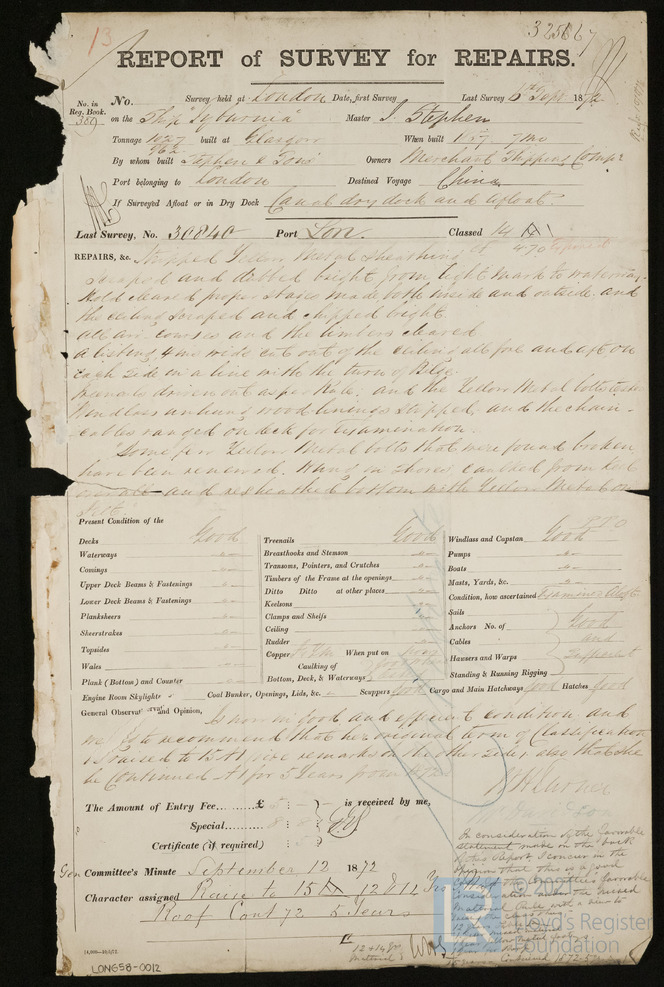 13
325667
REPORT of SURVEY for REPAIRS.
No. in Reg. Book. 380
No. Survey held at London Date, first Survey Last Survey 6th Sept 1872
on the Ship "Tyburnia" Master J. Stephen
Tonnage 1027 962 built at Glasgow When built 1857 7 mo
By whom built Stephen & Sons Owners Merchant Shipping Compy
Port belonging to London Destined Voyage China
If Surveyed Afloat or in Dry Dock Canal dry dock and afloat.
Last Survey, No. 30840 Port Lon. Classed 14 A1
REPAIRS, &c. Stripped Yellow Metal Sheathing
scraped and dubbed bright from light mark to waterway,
Hold cleared proper stages made both inside and outside, and
the ceiling scraped and bright
all air courses and the limbers cleared
a listing 4 ins wide cut out of the ceiling all fore and aft on
each side in a line with the turn of Bilge
driven out as per Rule, and the Yellow Metal bolts tested
Windlass unhung wood linings stripped, and the chain
cables ranged on deck for Examination.
Some few Yellow Metal bolts that were found broken
have been renewed. caulked from keel
and resheathed bottom with Yellow Metal on
Felt.
P.T.O
Present Condition of the
Decks Good
Waterways
Comings
Upper Deck Beams & Fastenings
Lower Deck Beams & Fastenings
Planksheers
Sheerstrakes
Topsides
Wales
Plank (Bottom) and Counter
Treenails Good
Breasthooks and Stemson
Transoms, Pointers, and Crutches
Timbers of the Frame at the openings
Ditto Ditto at other places
Keelsons
Clamps and Shelfs
Ceiling
Rudder
Copper When put on
Caulking of
Bottom, Deck, & Waterways
Windlass and Capstan Good
Pumps
Boats
Masts, Yards, &c.
Condition, how ascertained Examined
Sails
Anchors No. of Good
Cables and
Hausers and Warps Sufficient
Standing & Running Rigging
Engine Room Skylights Coal Bunker, Openings, Lids, &c. Scuppers Good Cargo and Main Hatchways Good Hatches Good
General Observation and Opinion, Is now in good and efficient condition and
we beg to recommend that her original term of Classification
is raised to 15 A1 (vide remarks on the other side) also that she
be Continued A1 for 5 Years from 1872
The Amount of Entry Fee........£ 5 is received by me,
Special........
Certificate (if required)
Committee's Minute September 12 1872
Character assigned Raise to 15 A1 12 & 14 Yrs
Roof Cont 72 5 Years
In consideration of the favorable
statement made on the back
of this Report, I concur in the
opinion that this is a good
case for the Committee's favorable
consideration under the mixed
Material Rule with a view to
12 & 14 Yr
Material
Continued 1872-5
14,000
LON658-0012
© 2021
Lloyd's Register
Foundation